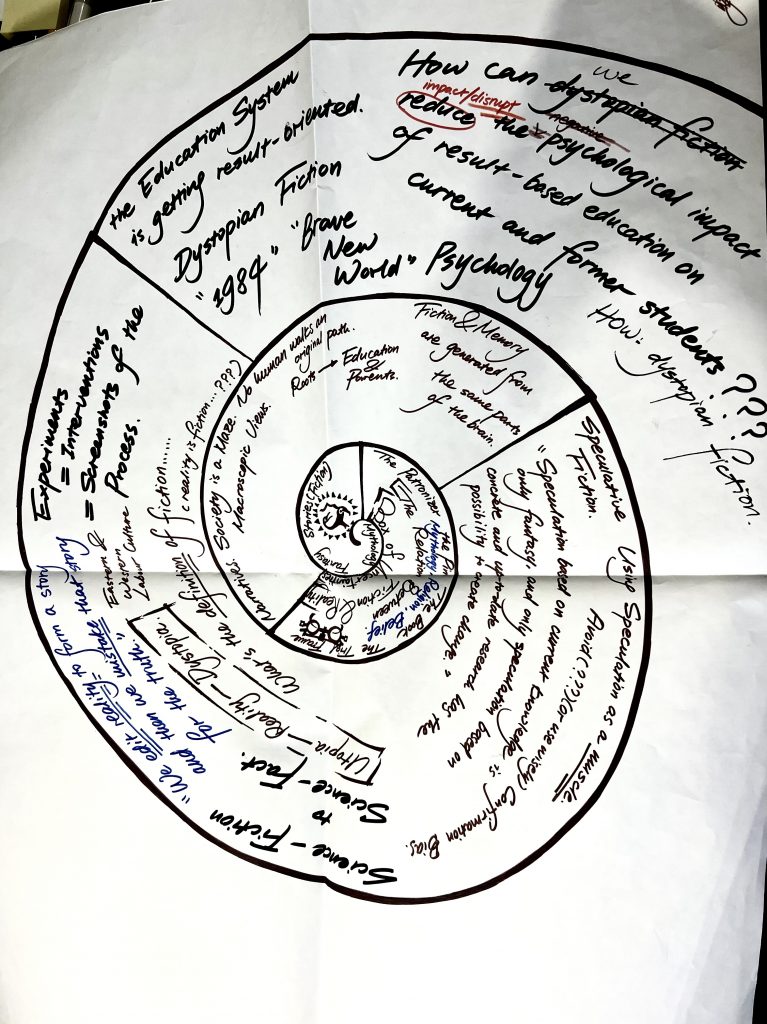 How can we dystopian fiction
impact/disrupt
reduce the negative psychological impact
of result-based education on
current and former students ???
HOW: dystopian fiction.
the Education System
is getting result-oriented.
Dystopian Fiction
"1984" "Brave
New
World" Psychology
Experiments
= Interventions
= Screenshots of the
Process.
Eastern &
Western
Labour Culture
"We edit reality = to form a story
and then we mistake that story
for the truth."
Science - Fiction
to
Science - Fact.
Utopia - Reality - Dystopia.
What's the definition of fiction......
(reality is fiction...???)
Speculative
Fiction.
Using Speculation as a muscle.
Avoid (???) (or use wisely) Confirmation Bias.
"Speculation based on current knowledge is
only fantasy, and only speculation based on
concrete and up-to-date research has the
possibility to create change."
Fiction & Memory
are generated from
the same parts
of the brain.
No human walks an
original path.
Roots → Education
&
Parents.
Society is a Maze.
Macroscopic Views.
Narratives
Stories (Fiction)
Mythology
Fantasy
The Patronizer
Mythology, Religion, Belief
Box of
Uncertainties
between
Fiction & Reality
The Book